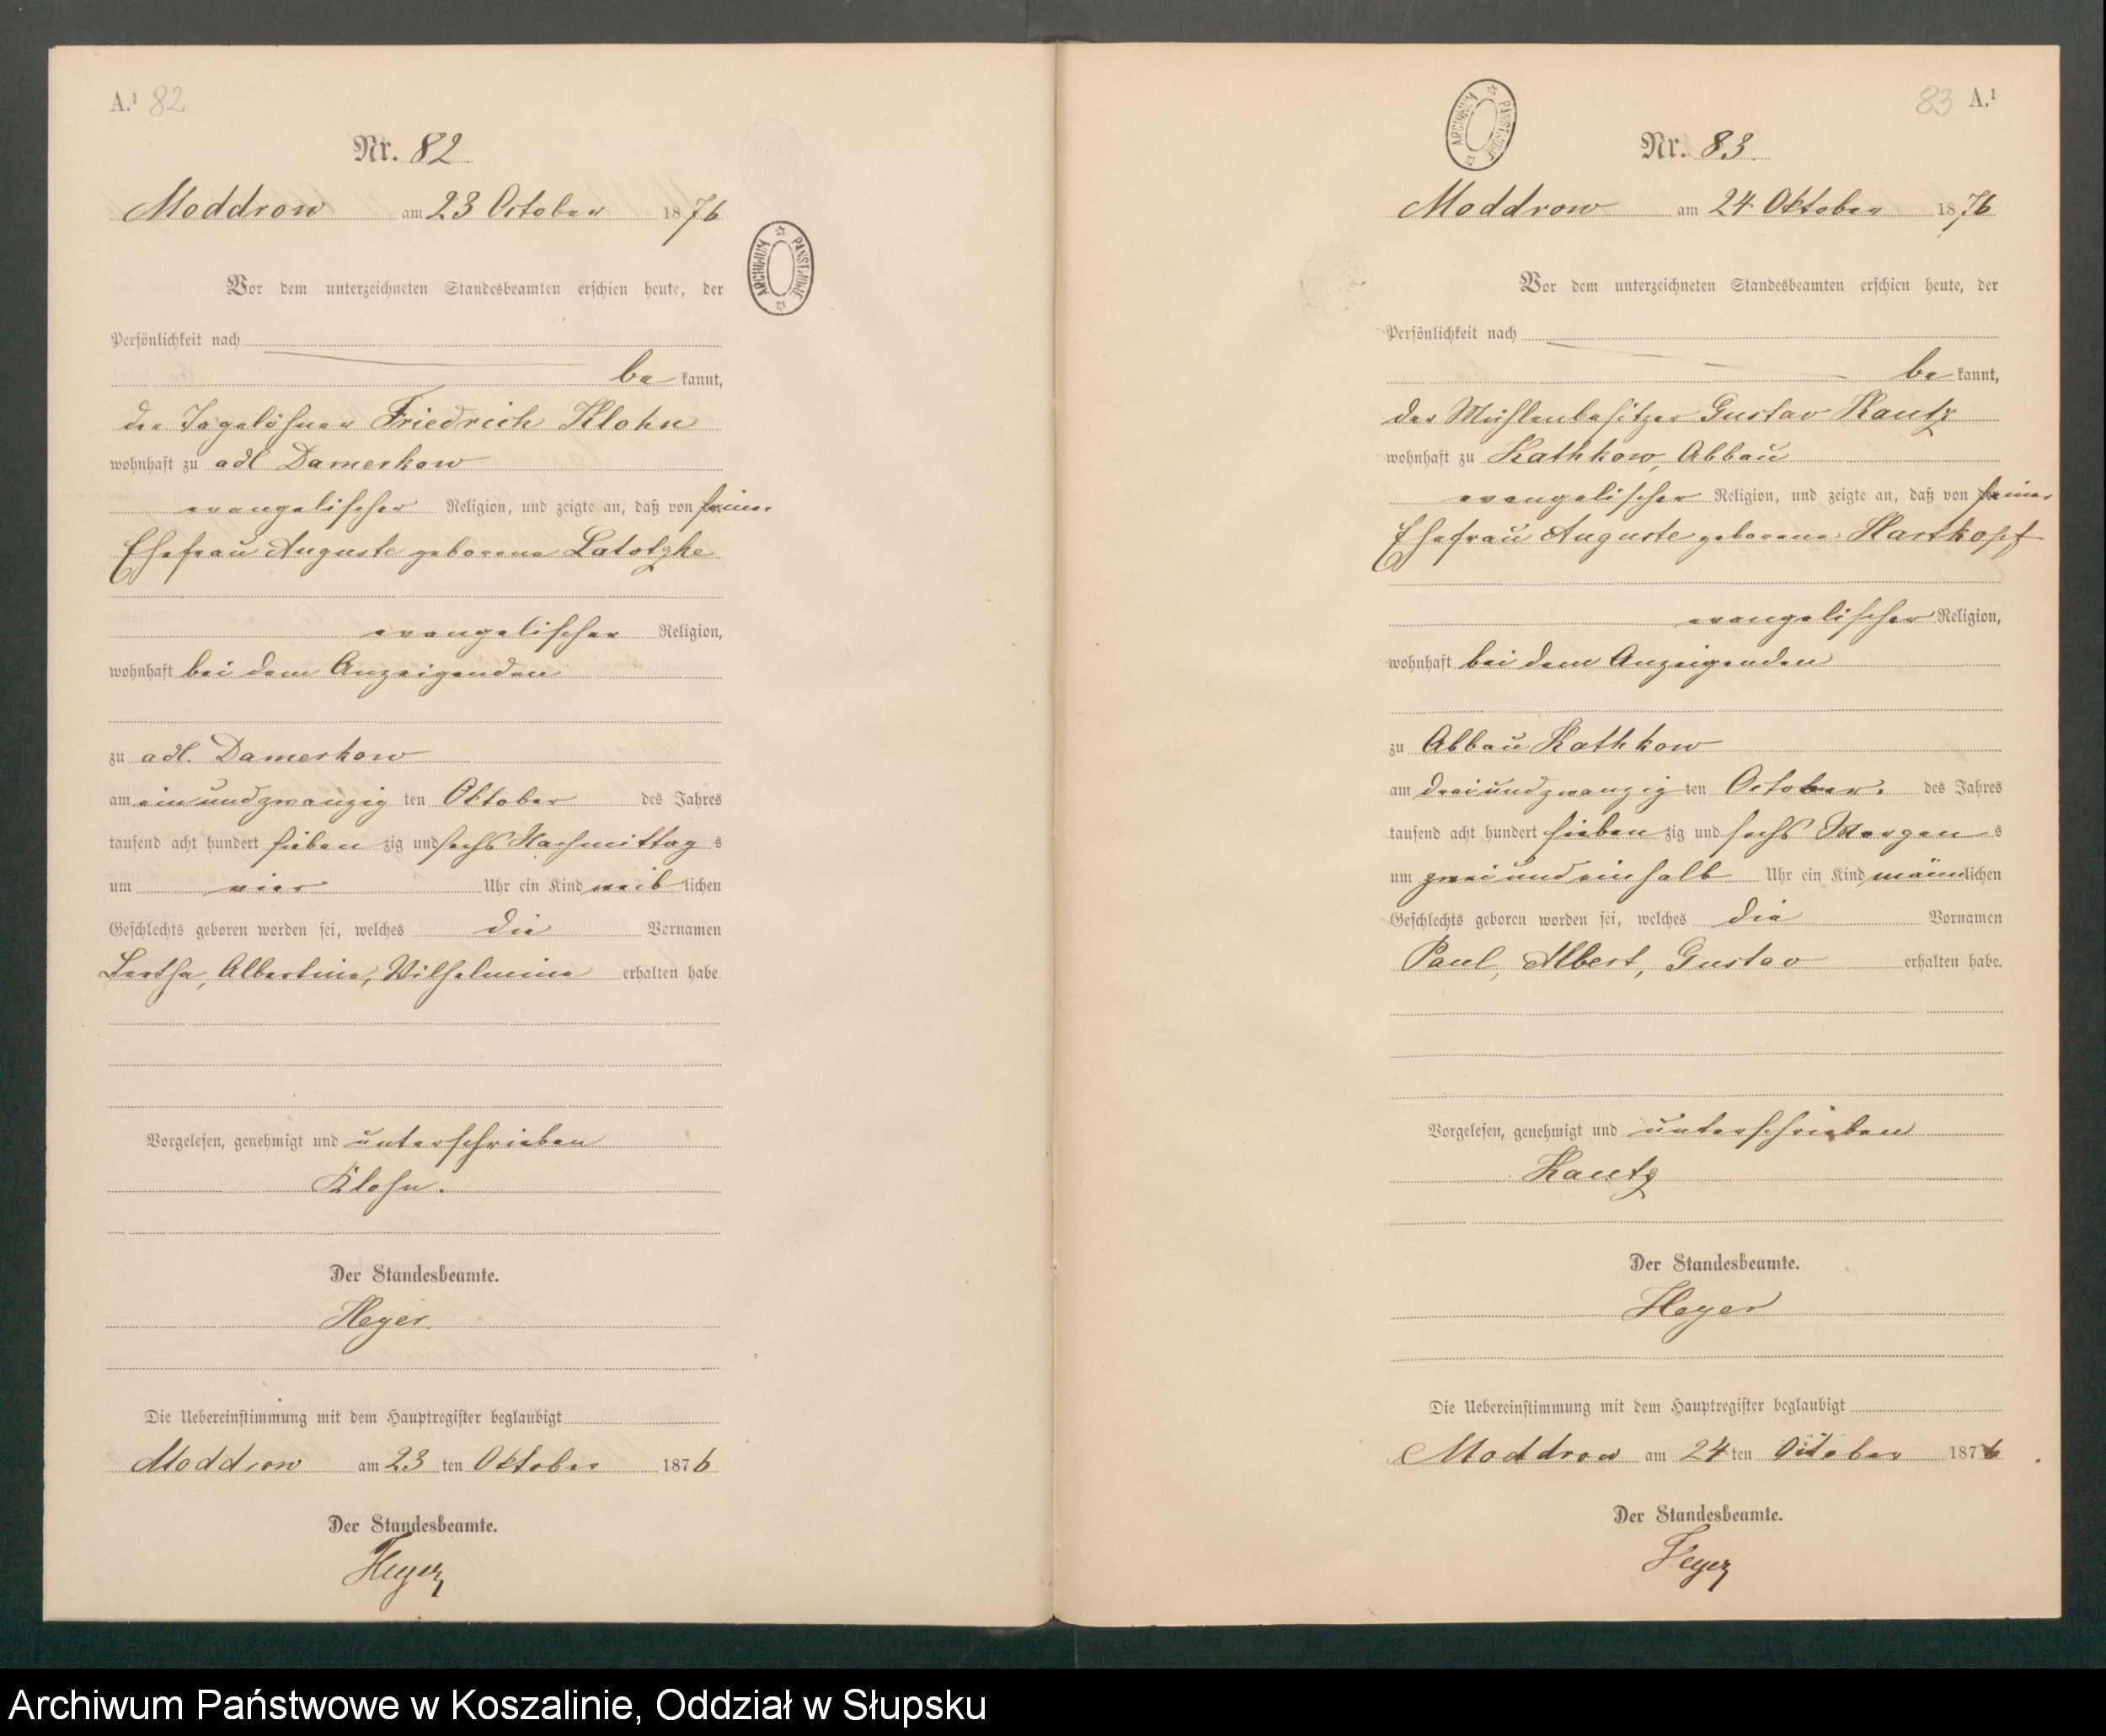 A.¹ 82
Nr. 82
Moddrow am 23 October 1876
ARCHIWUM PAŃSTWOWE
Vor dem unterzeichneten Standesbeamten erschien heute, der
Persönlichkeit nach
be kannt,
der Tagelöhner Friedrich Klohn
wohnhaft zu adl Damerkow
evangelischer Religion, und zeigte an, daß von seiner
Ehefrau Auguste geborene Latotzke
evangelischer Religion,
wohnhaft bei dem Anzeigenden
zu adl. Damerkow
am einundzwanzig ten Oktober des Jahres
tausend acht hundert sieben zig und sechs Nachmittag s
um vier Uhr ein Kind weib lichen
Geschlechts geboren worden sei, welches die Vornamen
Bertha, Albertine, Wilhelmine erhalten habe.
Vorgelesen, genehmigt und unterschrieben
Klohn.
Der Standesbeamte.
Heyer.
Die Uebereinstimmung mit dem Hauptregister beglaubigt
Moddrow am 23 ten Oktober 1876
Der Standesbeamte.
Heyer
83 A.¹
ARCHIWUM PAŃSTWOWE
Nr. 83.
Moddrow am 24 Oktober 1876
Vor dem unterzeichneten Standesbeamten erschien heute, der
Persönlichkeit nach
be kannt,
der Mühlenbesitzer Gustav Kautz
wohnhaft zu Kathkow, Abbau
evangelischer Religion, und zeigte an, daß von seiner
Ehefrau Auguste geborene Hartkopf
evangelischer Religion,
wohnhaft bei dem Anzeigenden
zu Abbau Kathkow
am dreiundzwanzig ten October. des Jahres
tausend acht hundert sieben zig und sechs Morgen s
um zwei und ein halb Uhr ein Kind männlichen
Geschlechts geboren worden sei, welches die Vornamen
Paul, Albert, Gustav erhalten habe.
Vorgelesen, genehmigt und unterschrieben
Kautz
Der Standesbeamte.
Heyer
Die Uebereinstimmung mit dem Hauptregister beglaubigt
Moddrow am 24 ten October 1876
Der Standesbeamte.
Heyer
Archiwum Państwowe w Koszalinie, Oddział w Słupsku